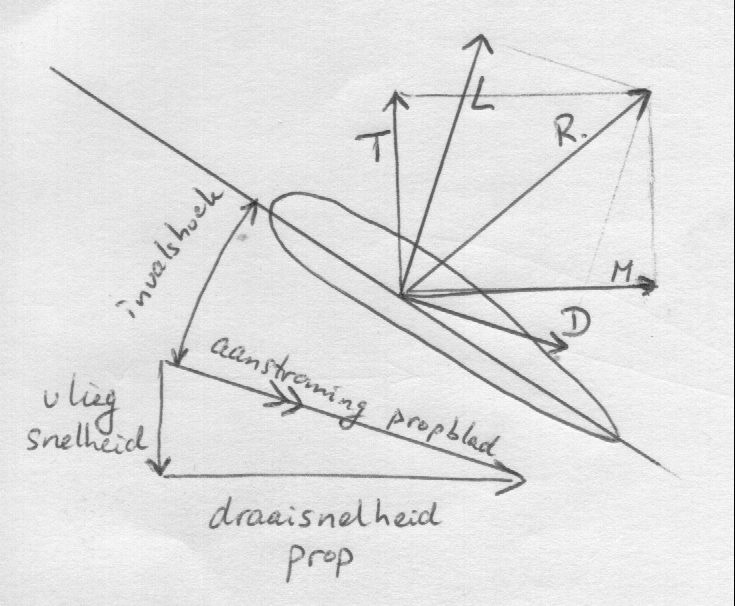 L
T
R.
M
D
invalshoek
aanstroming propblad
vlieg
snelheid
draaisnelheid
prop